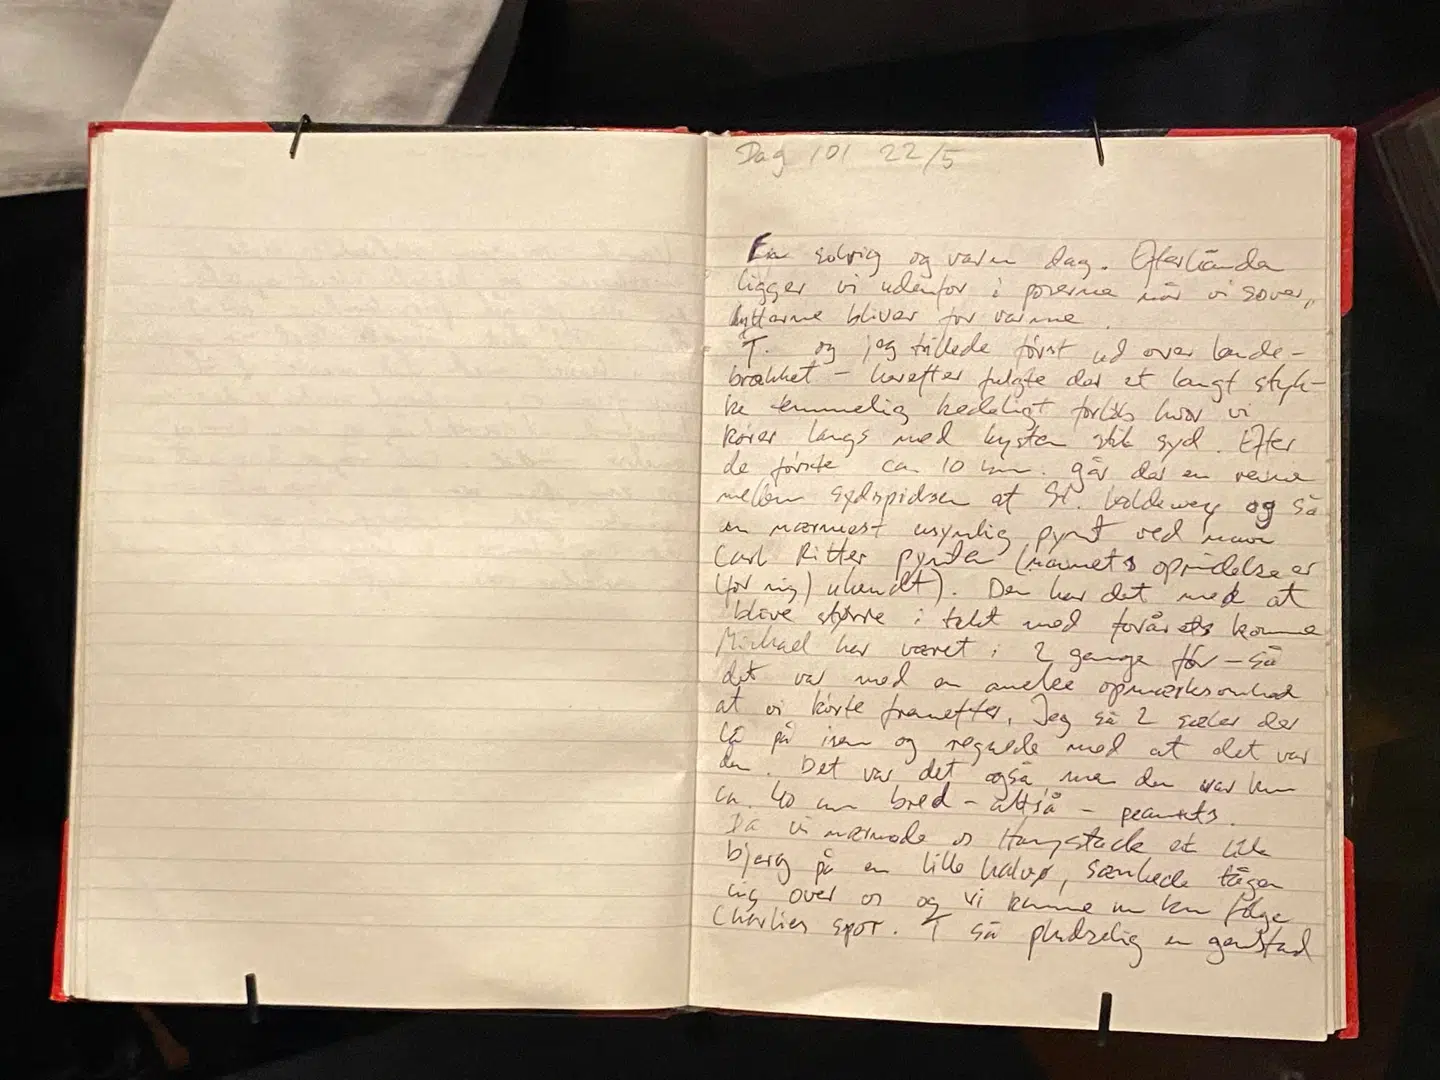 Dag 101 22/5
En solrig og varm dag. Efterhånden
ligger vi udenfor i poserne når vi sover,
hytterne bliver for varme.
T. og jeg trillede først ud over lande-
brækket – herefter fulgte der et langt styk-
ke temmelig kedeligt forløb hvor vi
kører langs med kysten stik syd. Efter
de første ca 10 km. går der en revne
mellem sydspidsen af St. Koldewey og så
en nærmest usynlig pynt ved navn
Carl Ritter pynten (navnets oprindelse er
(for mig) ukendt). Den har det med at
blive større i takt med forårets komme
Michael har været i 2 gange før – så
det var med en anelse opmærksomhed
at vi kørte fremefter. Jeg så 2 sæler der
lå på isen og regnede med at det var
den. Det var det også men den var kun
ca. 40 cm bred – altså – peanuts.
Da vi nærmede os Haystack et lille
bjerg på en lille halvø, sænkede tågen
sig over os og vi kunne nu kun følge
Charlies spor. T så pludselig en genstand